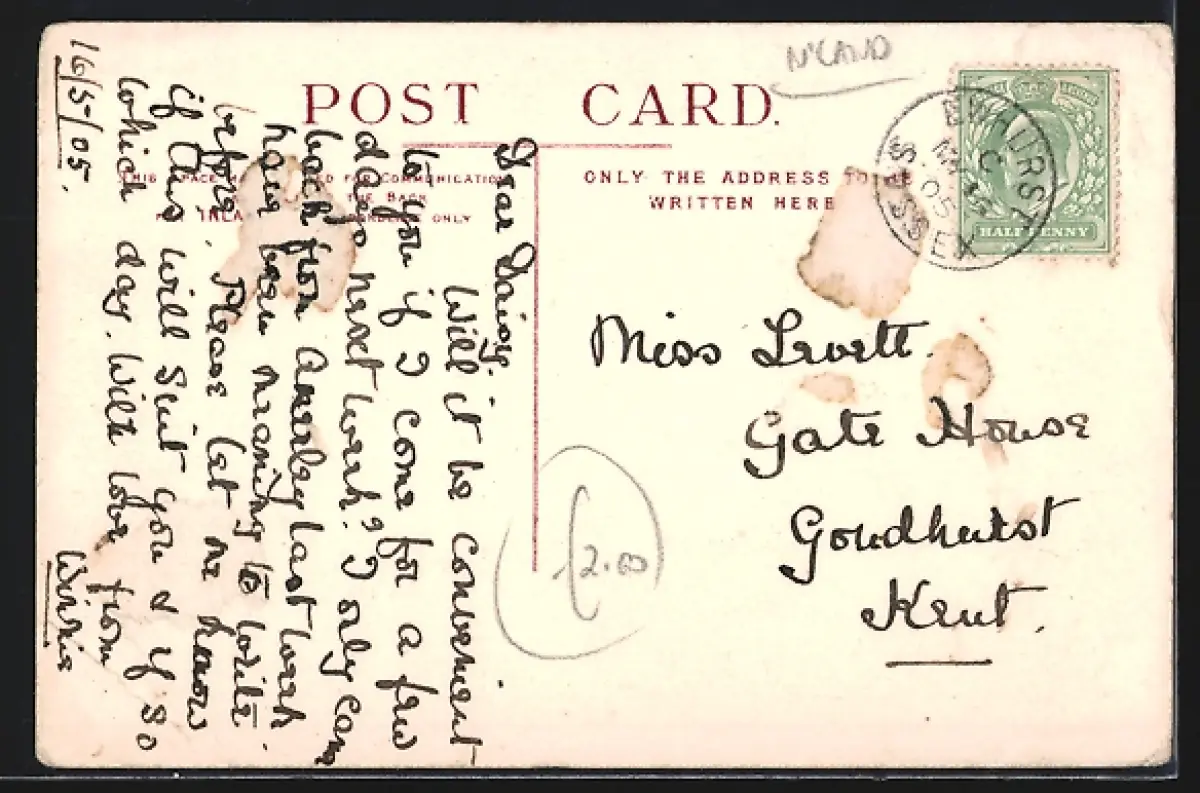 N'LAND
POST CARD.
THIS SPACE MAY BE USED FOR COMMUNICATION
THE BACK
INLAND ONLY
ONLY THE ADDRESS TO BE
WRITTEN HERE
EWHURST
C
MY 16
05
SUSSEX
HALFPENNY
Miss Levett.
Gate House
Goudhurst
Kent.
2.00
16/5/05.
Dear Daisy.
Will it be convenient
to you if I come for a few
days next week? I only came
back from Anerley last week
have been meaning to write
before. Please let me know
if this will suit you & if so
which day. With love from
Winnie